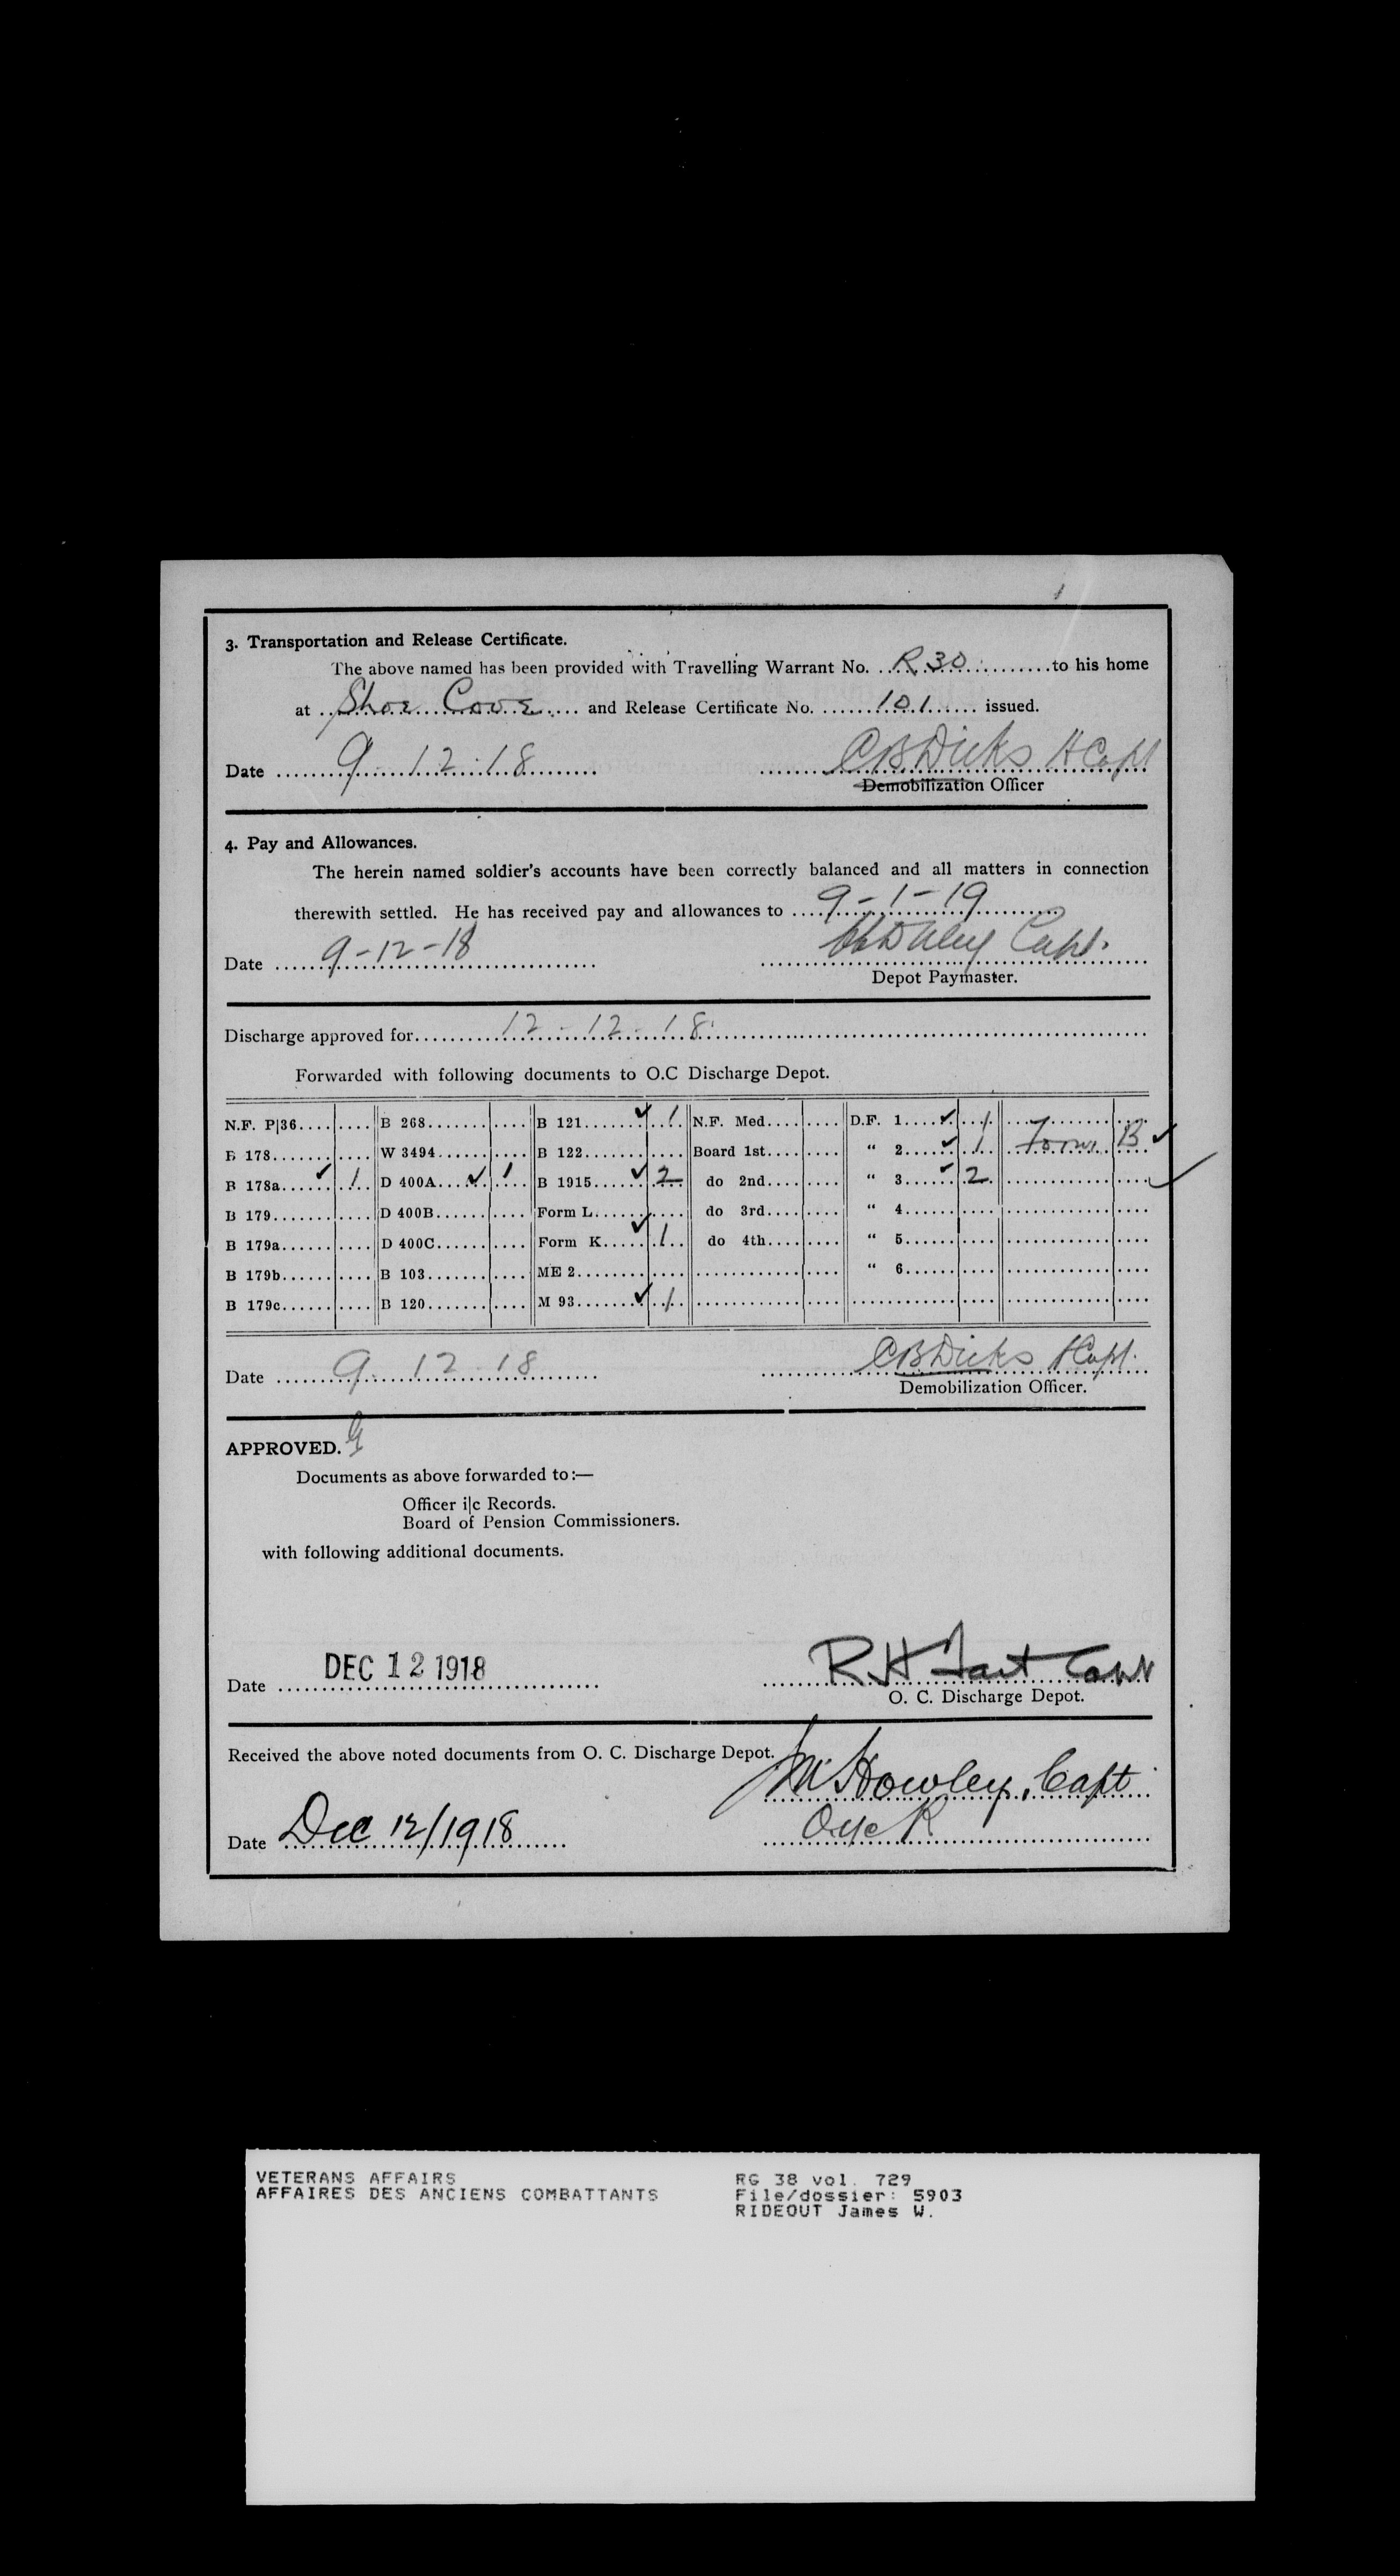 3. Transportation and Release Certificate.
The above named has been provided with Travelling Warrant No. ...R30...........to his home
at ...Shoe Cove..... and Release Certificate No. ......101...... issued.
Date .......9.12.18........ CB Dicks H Capt
Demobilization Officer
4. Pay and Allowances.
The herein named soldier's accounts have been correctly balanced and all matters in connection
therewith settled. He has received pay and allowances to ....9-1-19..........
Date .....9-12-18............ Capt.
Depot Paymaster.
Discharge approved for..........12-12-18..........
Forwarded with following documents to O.C Discharge Depot.
N.F. P|36.... B 268....... B 121.......✓ 1 N.F. Med.... D.F. 1....✓ 1
B 178....... W 3494....... B 122....... Board 1st.... " 2.....✓ 1 Form B ✓
B 178a......✓ 1 D 400A....✓ 1 B 1915.....✓ 2 do 2nd.... " 3......✓ 2
B 179....... D 400B...... Form L...... do 3rd.... " 4......
B 179a...... D 400C...... Form K.....✓ 1 do 4th.... " 5......
B 179b...... B 103....... ME 2........ " 6......
B 179c...... B 120....... M 93.......✓ 1
Date .....9.12.18........ CB Dicks H Capt.
Demobilization Officer.
APPROVED.
Documents as above forwarded to:—
Officer i|c Records.
Board of Pension Commissioners.
with following additional documents.
Date DEC 12 1918 R H Tait Capt
O. C. Discharge Depot.
Received the above noted documents from O. C. Discharge Depot.
Howley, Capt
Date Dec 12/1918 O i/c R
VETERANS AFFAIRS RG 38 vol. 729
AFFAIRES DES ANCIENS COMBATTANTS File/dossier: 5903
RIDEOUT James W.